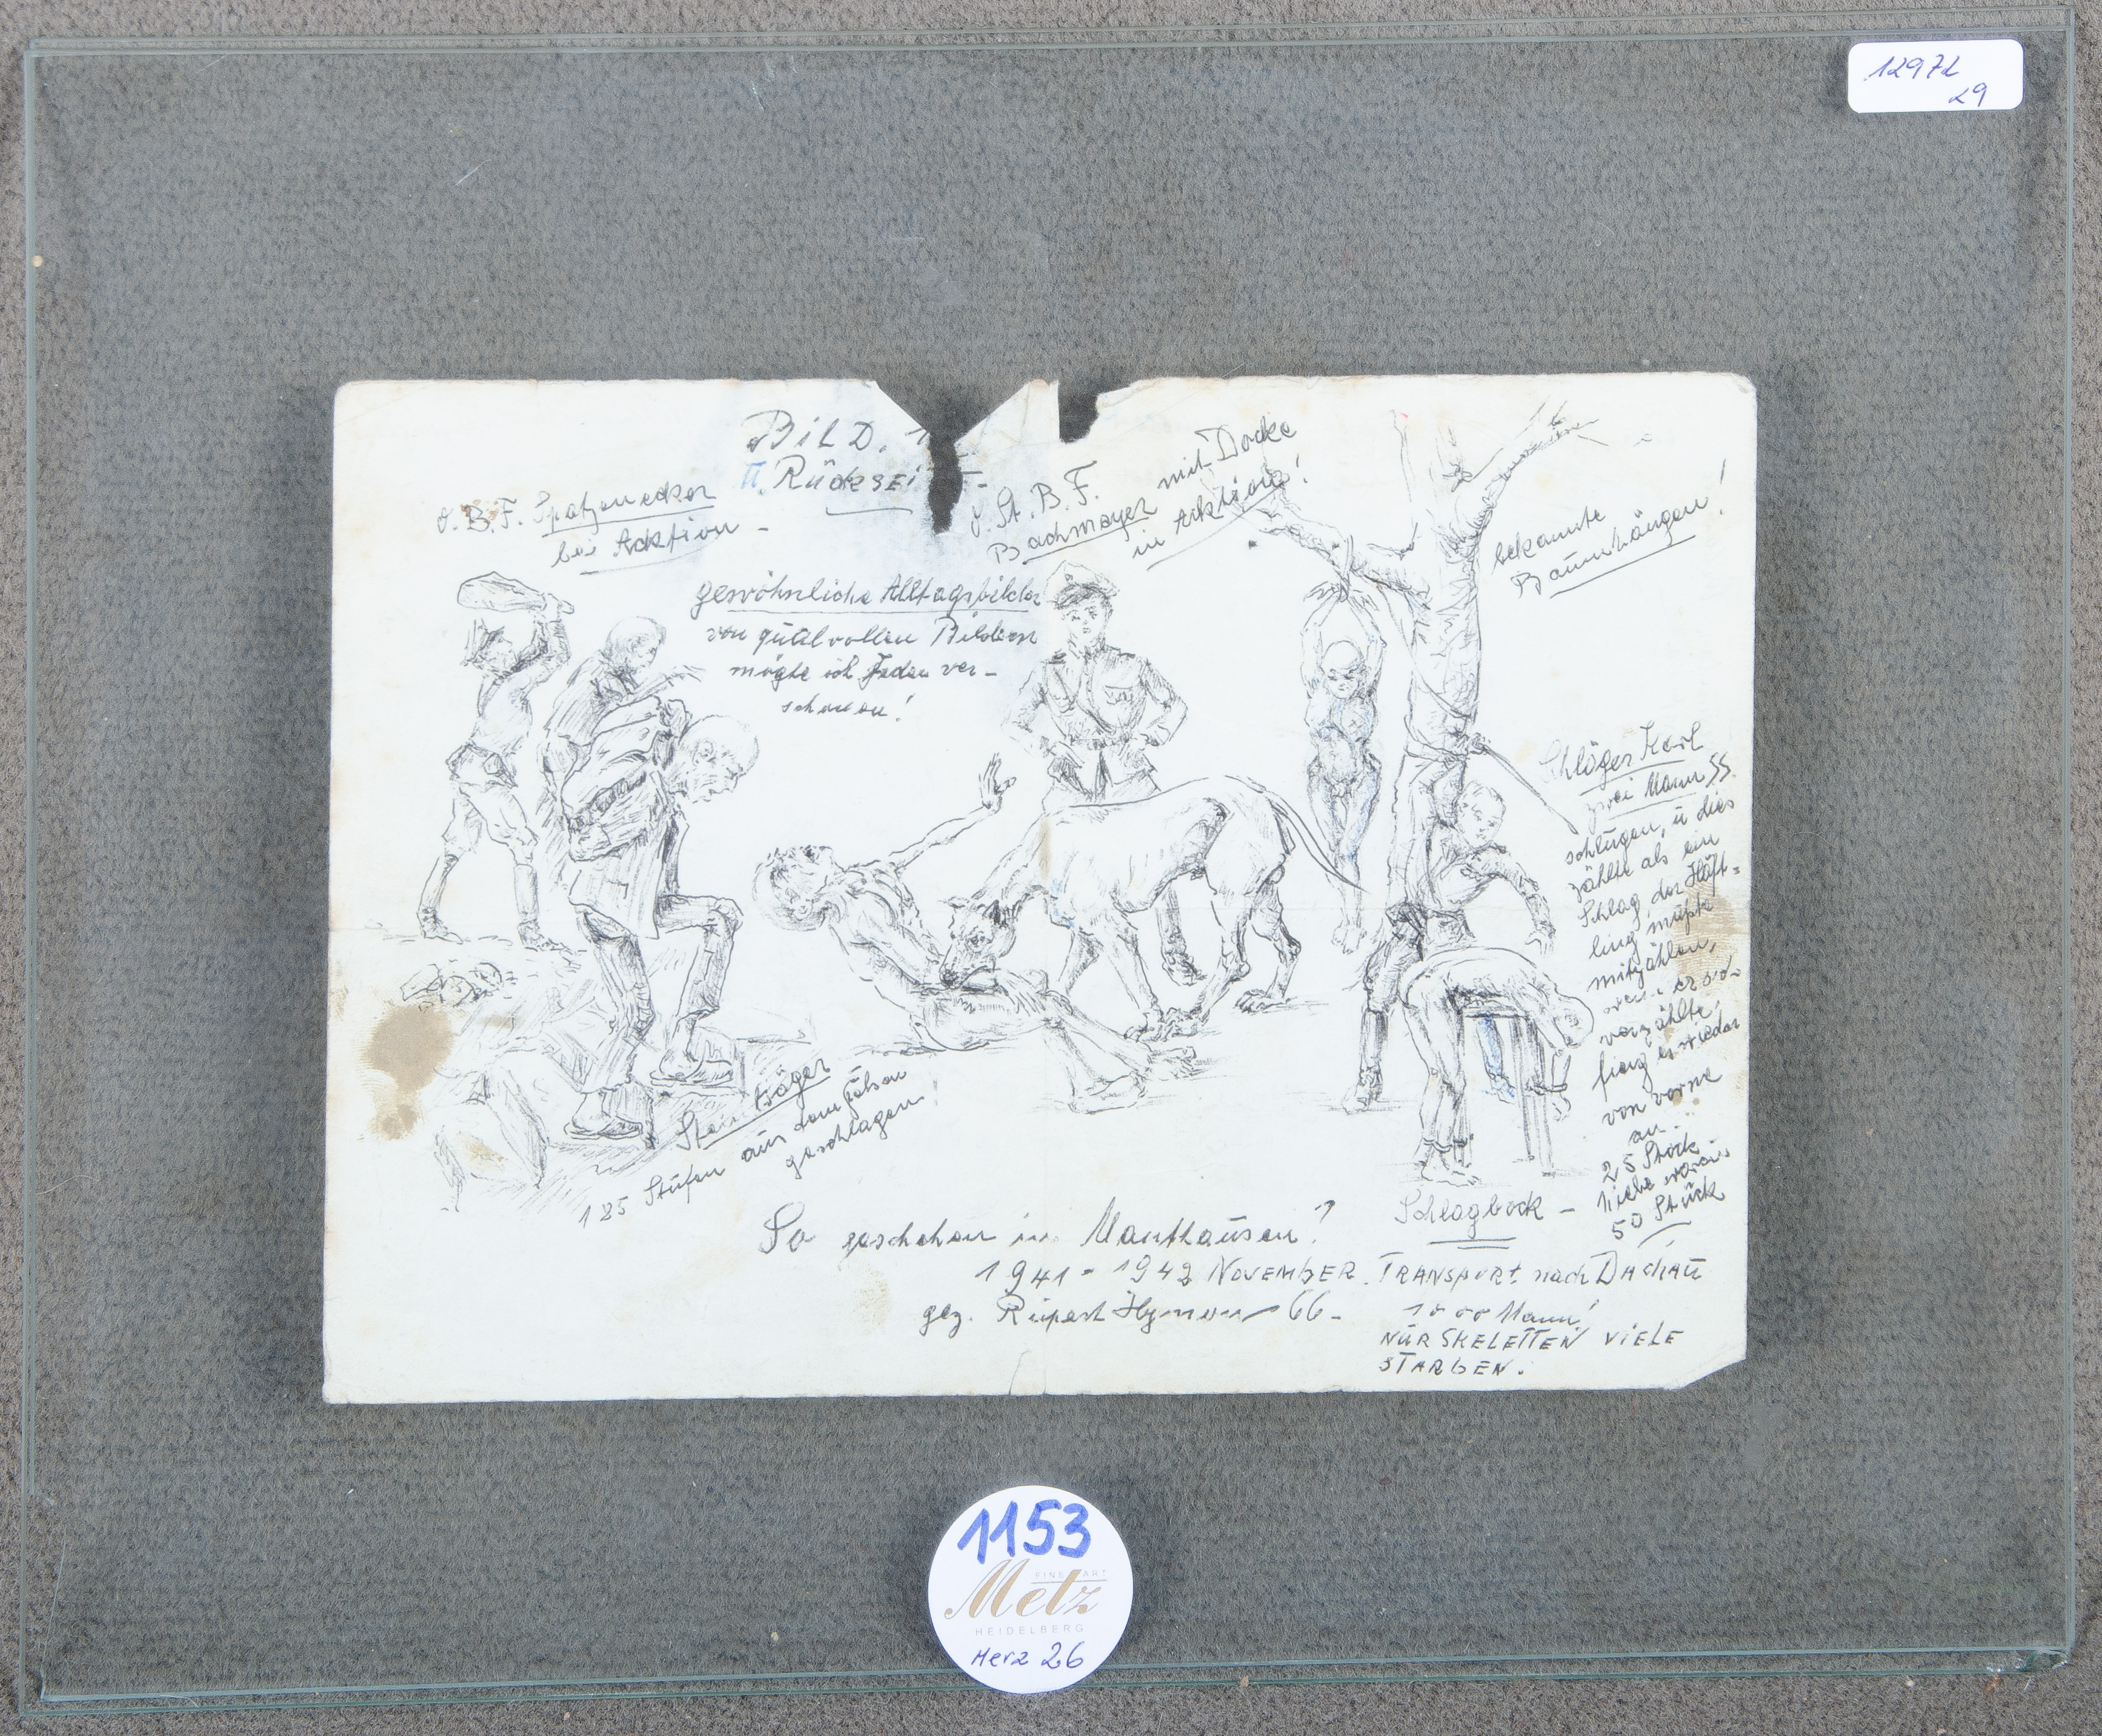 12972
29
BILD. 1
II. RückSEITE-
O.B.F. Spatzenecker
bei Acktion -
O. St. B. F.
Bachmayer mit Docke
in Acktion!
bekannte
Baumhängen!
gewöhnliche Alltagsbilder
von quälvollen Bildern
mögte ich Jeden ver-
schonen!
Schläger Karl
zwei Mann SS.
schlugen, u dies
zählte als ein
Schlag der Häft=
ling müßte
mitzählen,
er sich
verzählte
fieng es wieder
von vorne
an.
25 Stock
hiebe waren
50 Stück
Steinträger
185 Stüfen aus dem felsen
geschlagen!
Schlagbock -
So geschehen in Mauthausen!
1941 - 1942 NOVEMBER. TRANSPORT nach DACHAU
gez. Rupert 66- 1000 Mann!
NUR SKELETTEN VIELE
STARBEN.
1153
FINE ART
Metz
HEIDELBERG
Herz 26